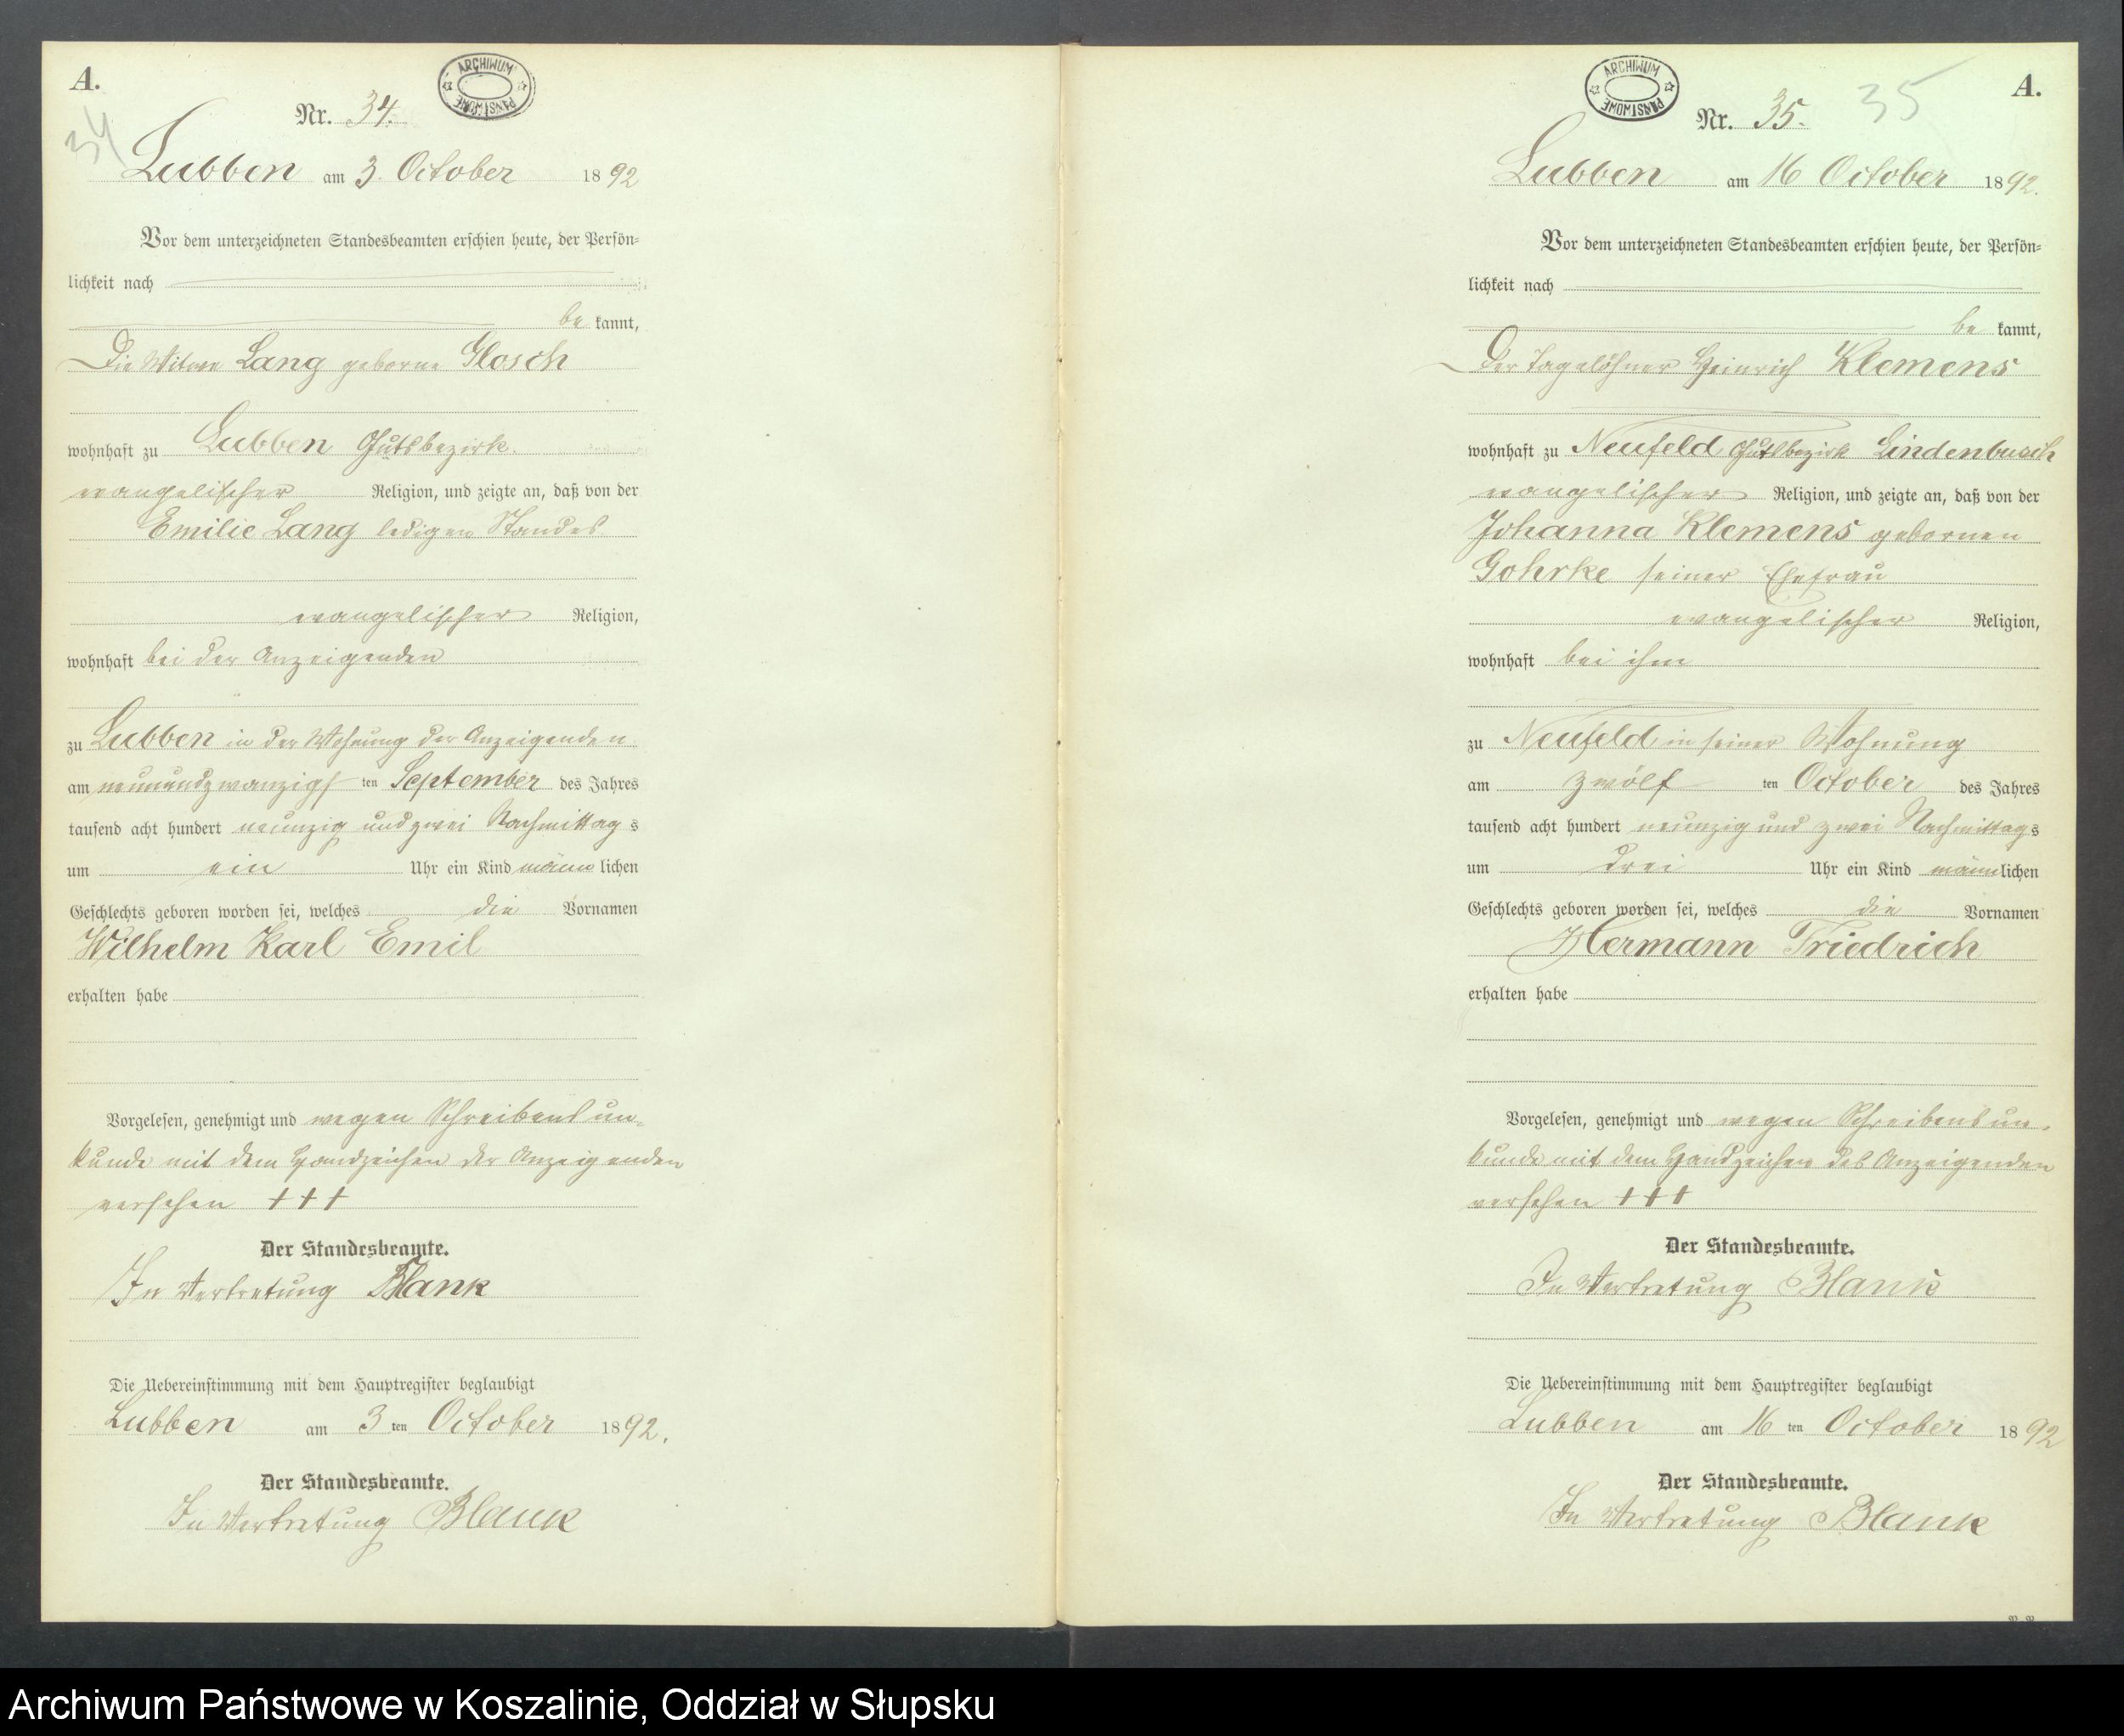 A.
34
Nr. 34.
ARCHIWUM PAŃSTWOWE
Lubben am 3. October 1892
Vor dem unterzeichneten Standesbeamten erschien heute, der Persön=
lichkeit nach
be kannt,
Die Witwe Lang geborne Glosch
wohnhaft zu Lubben Gutsbezirk.
evangelischer Religion, und zeigte an, daß von der
Emilie Lang ledigen Standes
evangelischer Religion,
wohnhaft bei der Anzeigenden
zu Lubben in der Wohnung der Anzeigenden
am neunundzwanzigs ten September des Jahres
tausend acht hundert neunzig und zwei Nachmittag s
um ein Uhr ein Kind männ lichen
Geschlechts geboren worden sei, welches die Vornamen
Wilhelm Karl Emil
erhalten habe
Vorgelesen, genehmigt und wegen Schreibensun=
kunde mit dem Handzeichen der Anzeigenden
versehen +++
Der Standesbeamte.
In Vertretung Blank
Die Uebereinstimmung mit dem Hauptregister beglaubigt
Lubben am 3 ten October 1892.
Der Standesbeamte.
In Vertretung Blank
A.
35
Nr. 35.
ARCHIWUM PAŃSTWOWE
Lubben am 16 October 1892.
Vor dem unterzeichneten Standesbeamten erschien heute, der Persön=
lichkeit nach
be kannt,
Der Tagelöhner Heinrich Klemens
wohnhaft zu Neufeld Gutsbezirk Lindenbusch
evangelischer Religion, und zeigte an, daß von der
Johanna Klemens gebornen
Gohrke seiner Ehefrau
evangelischer Religion,
wohnhaft bei ihm
zu Neufeld in seiner Wohnung
am zwölf ten October des Jahres
tausend acht hundert neunzig und zwei Nachmittag s
um drei Uhr ein Kind männlichen
Geschlechts geboren worden sei, welches die Vornamen
Hermann Friedrich
erhalten habe
Vorgelesen, genehmigt und wegen Schreibensun=
kunde mit dem Handzeichen des Anzeigenden
versehen +++
Der Standesbeamte.
In Vertretung Blank
Die Uebereinstimmung mit dem Hauptregister beglaubigt
Lubben am 16 ten October 1892
Der Standesbeamte.
In Vertretung Blank
Archiwum Państwowe w Koszalinie, Oddział w Słupsku